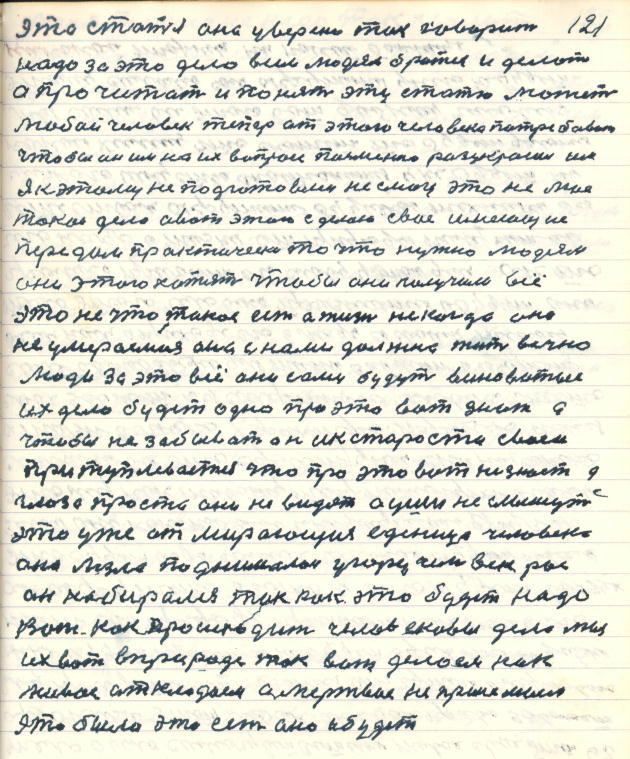 это статя она уверено так говорит 121
надо за это дело всем людям братся и делат
а прочитат и понят эту статю может
любой человек тепер от этого человека потребоват
чтобы он им на их вопрос писменно
Я к этому не подготовлин не смогу это не мое
такое дело а вот этого сделаю свое имеющие
передам практически то что нужно людям
они этого хотят чтобы они получили всё
это не что такое ест а жизн некогда она
не умераемая она с нами должна жит вечно
люди за это всё они сами будут виноватые
их дело будет одно про это вот знат а
чтобы не забыват он и к старости своеи
притупливается что про это вот незнает а
глаза проста они не видят а уши не слышут
это уже отмирающия еденица человека
она лезла поднималас угору человек рос
он набирался так как это будет надо
Вот как происходит человековы дело
их вот в природе так вот делаем как
живое откладаем а мертвое не
это было это ест оно и будет